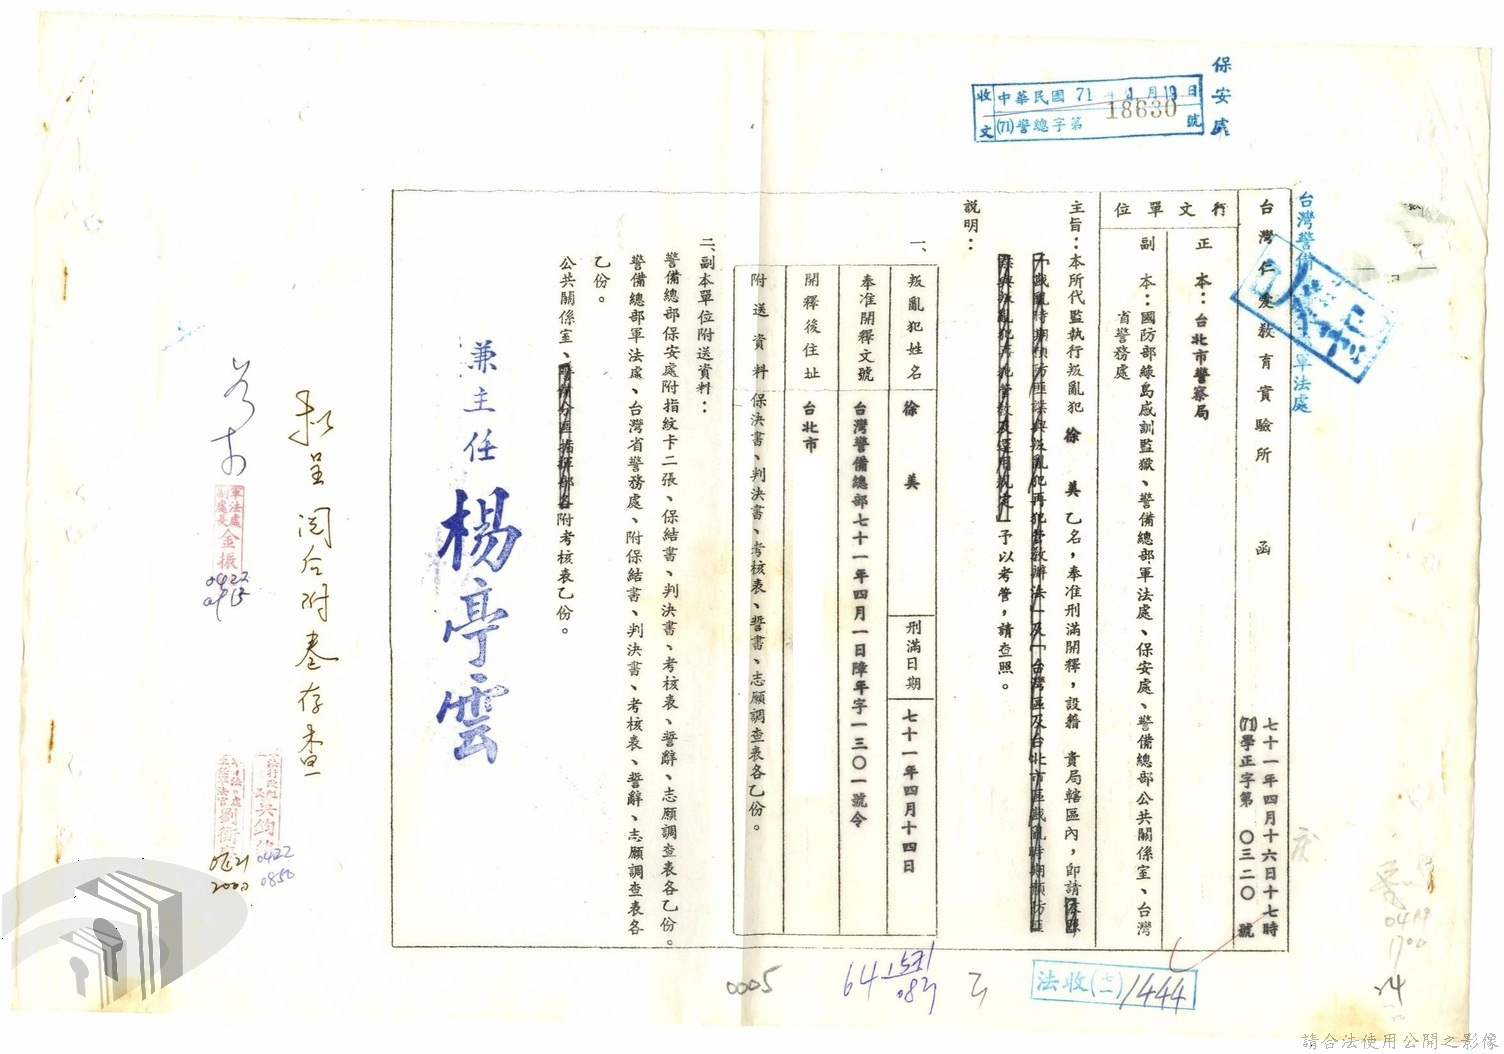 保安處
收文 中華民國71年4月19日
(71)警總字第18630號
台灣警備
軍法處
台灣仁愛教育實驗所　函
七十一年四月十六日十七時
(71)學正字第　〇三二〇　號
行文單位
正　本：台北市警察局
副　本：國防部綠島感訓監獄、警備總部軍法處、保安處、警備總部公共關係室、台灣
省警務處
主旨：本所代監執行叛亂犯　徐　美　乙名，奉准刑滿開釋，設籍　貴局轄區內，即請依照
「戡亂時期預防匪諜與叛亂犯再犯管教辦法」及「台灣區及台北市區戡亂時期預防匪
諜與叛亂犯再犯管教及運用規定」予以考管，請查照。
說明：
一、
叛亂犯姓名　徐　美　刑滿日期　七十一年四月十四日
奉准開釋文號　台灣警備總部七十一年四月一日障年字一三〇一號令
開釋後住址　台北市
附送資料　保決書、判決書、考核表、誓書、志願調查表各乙份。
二、副本單位附送資料：
警備總部保安處附指紋卡二張、保結書、判決書、考核表、誓辭、志願調查表各乙份。
警備總部軍法處、台灣省警務處、附保結書、判決書、考核表、誓辭、志願調查表各
乙份。
公共關係室、警備分區指揮部各附考核表乙份。
兼主任　楊亭雲
呈閱后附卷存查
軍法處副處長金振
0422
0421
2000
0422
0850
0005
64
法收(七一)1444
0419
1700
請合法使用公開之影像